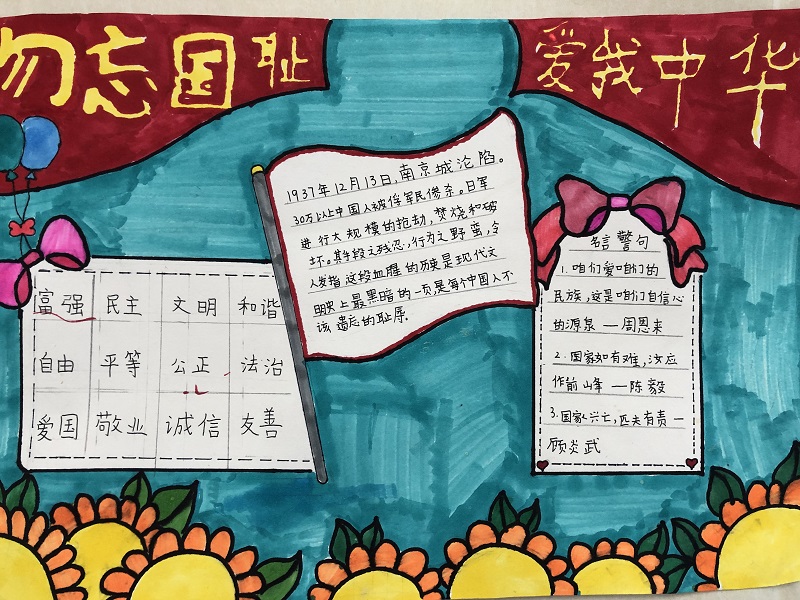 勿忘国耻
爱我中华
1937年12月13日,南京城沦陷。
30万以上中国人被俘军民惨杀。日军
进行大规模的抢劫,焚烧和破
坏。其手段之残忍,行为之野蛮,令
人发指这段血腥的历史是现代文
明史上最黑暗的一页是每个中国人不
该遗忘的耻辱。
富强 民主 文明 和谐
自由 平等 公正 法治
爱国 敬业 诚信 友善
名言警句
1.咱们爱咱们的
民族,这是咱们自信心
的源泉—周恩来
2.国家如有难,汝应
作前山峰—陈毅
3.国家兴亡,匹夫有责—
顾炎武